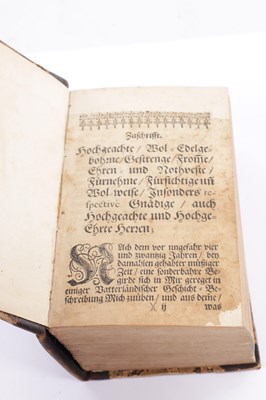 Zuschrifft.
Hochgeachte / Wol-Edelge-
bohrne / Gestrenge / From̃e /
Ehren- und Nothveste /
Fürnehme / Fürsichtige uñ
Wol-weise / Insonders re-
spectivè Gnädige / auch
Hochgeachte und Hochge-
Ehrte Herren;
NAch dem vor ungefahr vier
und zwantzig Jahren / bey
damahlen gehabter müßiger
Zeit / eine sonderbahre Be-
girde sich in Mir gereget in
einiger Vatterländischer Geschicht-Be-
schreibung Mich zuüben / und aus deme /
)( ij was